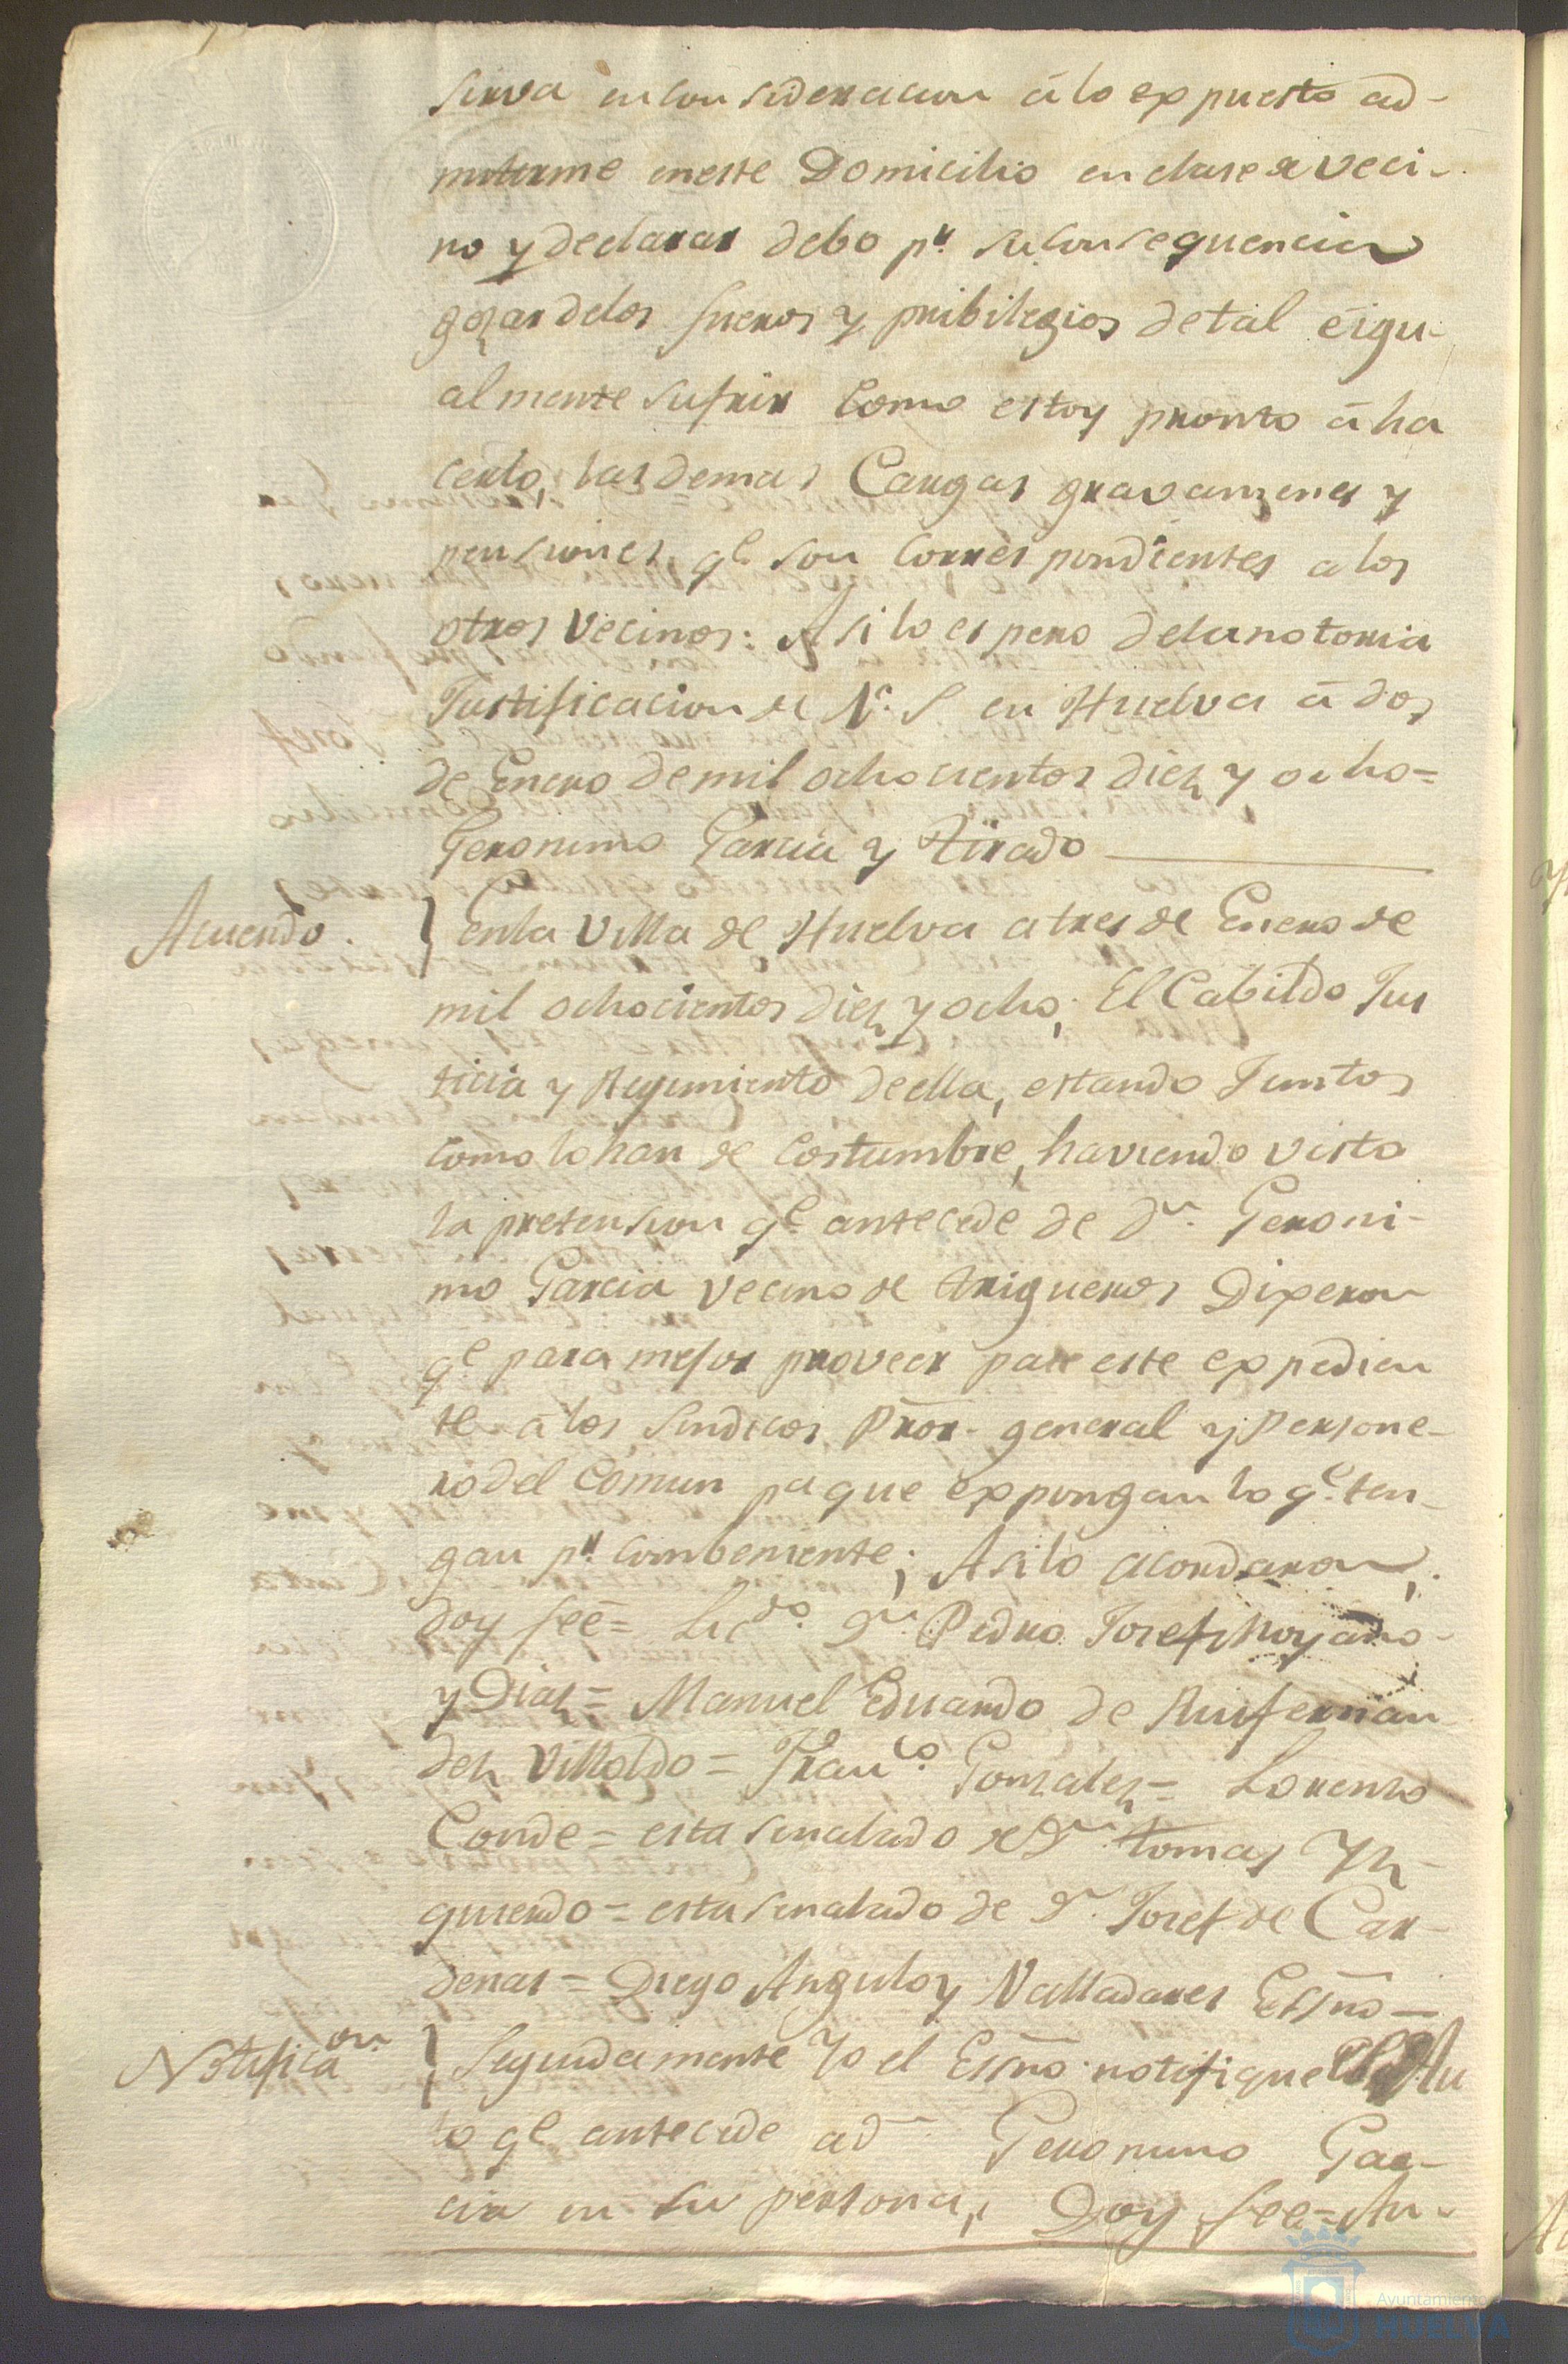 sirva en consideracion á lo expuesto ad-
mitirme en este Domicilio en clase de veci-
no y declarar debo pr. su consequencia
gozar de los fueros y pribilegios de tal é igu-
almente sufrir como estoy pronto á ha
cerlo, las demas Cargas gravamenes y
pensiones, qe. son correspondientes a los
otros Vecinos: Asi lo espero de la notoria
Justificacion de V. S. en Huelva á dos
de Enero de mil ochocientos diez y ocho=
Geronimo Garcia y Tirado
Acuerdo. } En la Villa de Huelva a tres de Enero de
mil ochocientos diez y ocho; El Cabildo Jus
ticia y Regimiento de ella, estando Juntos
como lo han de costumbre, haviendo visto
la pretension qe. antecede de Dn. Geroni-
mo Garcia vecino de Trigueros Dixeron
qe. para mejor proveer pase este expedien
te á los Sindicos Pror. general y Persone-
ro del Comun pa que expongan lo qe. ten-
gan pr. combeniente; Asi lo acordaron,
doy feé= Licdo. Dn. Pedro Josef Moyano
y Diaz= Manuel Eduardo de Ruifernan
dez Villoldo= Franco. Gonzalez= Lorenzo
Conde= esta señalado de Dn. Tomas Yz-
quierdo= esta señalado de Dn. Josef de Car-
denas= Diego Angulo y Valladares Essno-
Notificaon. } Seguidamente Yo el Essno. notifique el Au
to qe. antecede a Dn. Geronimo Gar-
cia en su persona, Doy feé= An-
Ayuntamiento
HUELVA